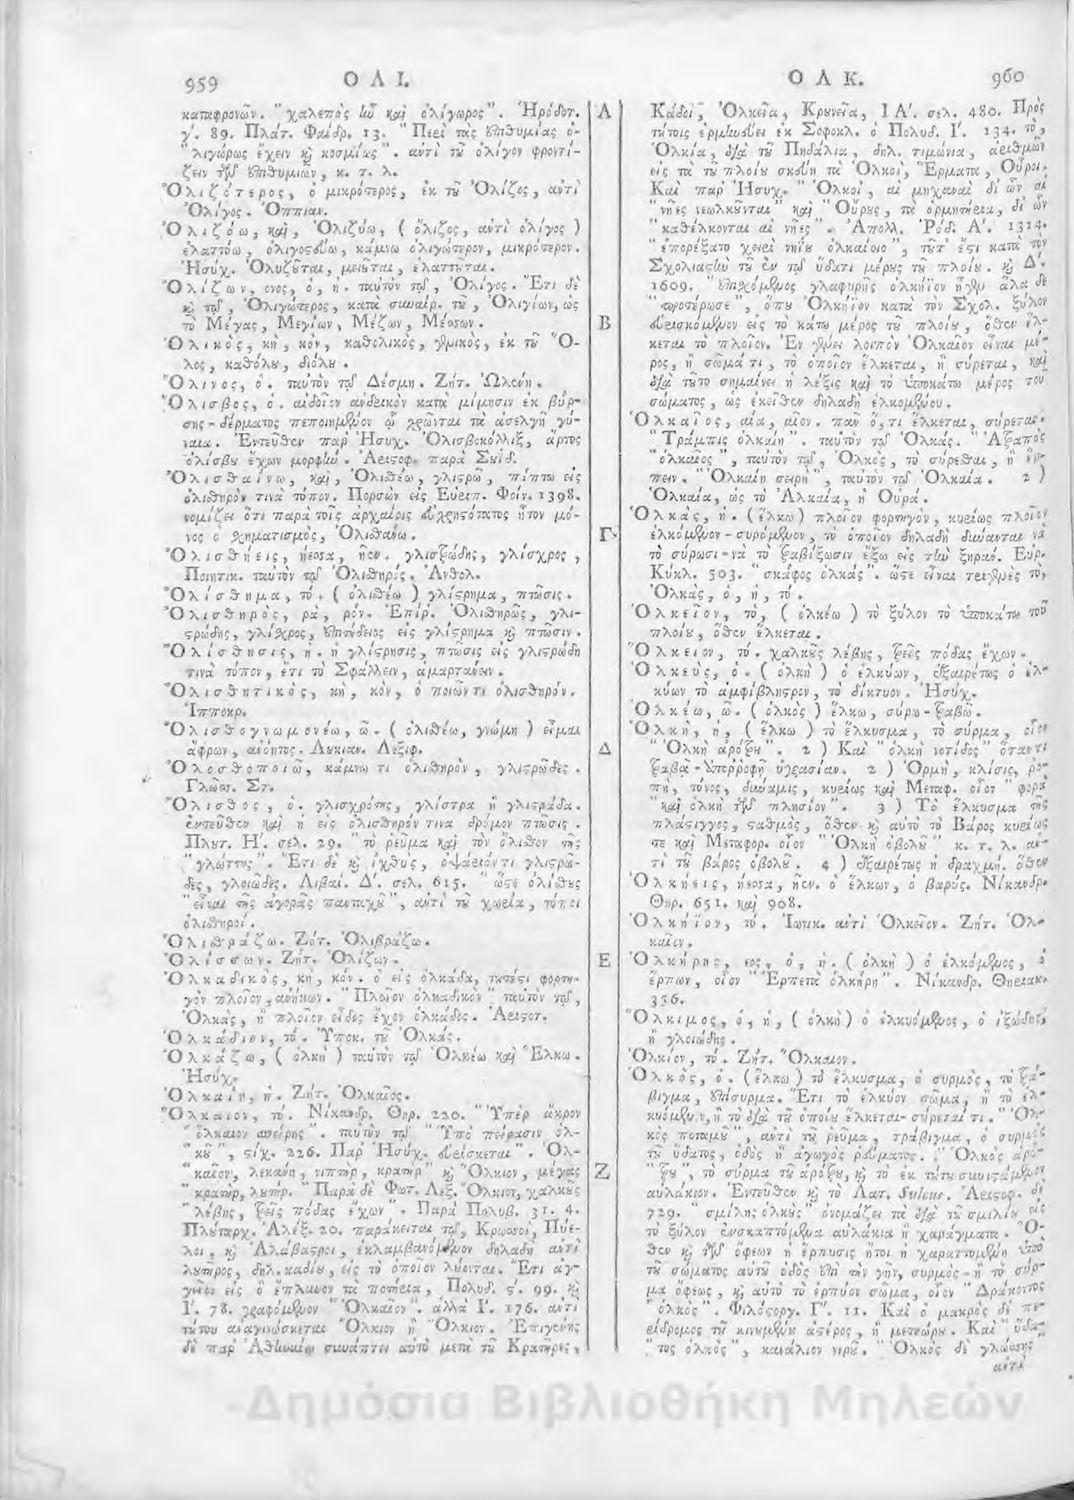 959 Ο Λ Ι.
καταφρονῶν. "χαλεπὸς ἰὼ καὶ ὀλίγωρος". Ἡρόδοτ.
γ΄. 89. Πλάτ. Φαίδρ. 13. "Περὶ τὰς ἐπιθυμίας ὀ-
"λιγώρως ἔχειν καὶ κοσμίως". αὐτὶ τοῦ ὀλίγον φροντί-
ζειν τῶν ἐπιθυμιῶν, κ. τ. λ.
Ὀλιζότερος, ὁ μικρότερος, ἐκ τοῦ Ὀλίζος, αὐτὶ
Ὀλίγος. Ὀππιαν.
Ὀλιζόω, καὶ, Ὀλιζύω, ( ὄλιζος, αὐτὶ ὀλίγος )
ἐλαττόω, ὀλιγοστεύω, κάμνω ὀλιγώτερον, μικρότερον.
Ἡσύχ. Ὀλυζοῦται, μειοῦται, ἐλαττοῦται.
Ὀλίζων, ονος, ὁ, ἡ. ταὐτὸν τῷ, Ὀλίγος. Ἔτι δὲ
καὶ τῷ, Ὀλιγώτερος, κατὰ συναίρ. τοῦ, Ὀλιγίων, ὡς
τὸ Μέγας, Μεγίων, Μέζων, Μέσσων.
Ὀλικός, κὴ, κὸν, καθολικὸς, γενικὸς, ἐκ τοῦ Ὅ-
λος, καθόλου, διόλου.
Ὄλινος, ὁ. ταὐτὸν τῷ Δέσμη. Ζήτ. Ὠλένη.
Ὄλισβος, ὁ. αἰδοῖον ἀνδρικὸν κατὰ μίμησιν ἐκ βύρ-
σης-δέρματος πεποιημένον ᾧ χρῶνται τὰ ἀσελγῆ γύ-
ναια. Ἐντεῦθεν παρ' Ἡσυχ. Ὀλισβοκόλλιξ, ἄρτος
ὀλίσβου ἔχων μορφήν. Ἀριστοφ. παρὰ Σουΐδ.
Ὀλισθαίνω, καὶ, Ὀλισθέω, γλιστρῶ, πίπτω εἰς
ὀλισθηρόν τινα τόπον. Πορσὼν εἰς Εὐριπ. Φοίν. 1398.
νομίζει ὅτι παρὰ τοῖς ἀρχαίοις εὐχρηστότατος ἦτον μό-
νος ὁ σχηματισμός, Ὀλισθάνω.
Ὀλισθήεις, ήεσσα, ῆεν. γλιστρώδης, γλίσχρος,
Ποιητικ. ταὐτὸν τῷ Ὀλισθηρός. Ἀνθολ.
Ὀλίσθημα, τό. ( ὀλισθέω ) γλίστρημα, πτῶσις.
Ὀλισθηρὸς, ρὰ, ρόν. Ἐπίρ. Ὀλισθηρῶς, γλι-
στρώδης, γλίσχρος, ἐπιτήδειος εἰς γλίστρημα καὶ πτῶσιν.
Ὀλίσθησις, ἡ. ἡ γλίστρησις, πτῶσις εἰς γλιστρώδη
τινὰ τόπον, ἔτι τὸ Σφάλλειν, ἁμαρτάνειν.
Ὀλισθητικὸς, κὴ, κὸν, ὁ ποιῶν τι ὀλισθηρόν.
Ἱπποκρ.
Ὀλισθογνωμονέω, ῶ. ( ὀλισθέω, γνώμη ) εἶμαι
ἄφρων, ἀνόητος. Λουκιαν. Λεξιφ.
Ὀλοσθοποιῶ, κάμνω τι ὀλισθηρὸν, γλιστρῶδες.
Γλωσσ. Στ.
Ὄλισθος, ὁ. γλισχρότης, γλίστρα ἢ γλιστράδα.
ἐντεῦθεν καὶ ἡ εἰς ὀλισθηρόν τινα δρόμον πτῶσις.
Πλουτ. Η΄. σελ. 29. "τὸ ῥεῦμα καὶ τὸν ὄλισθον τῆς
"γλώττης". Ἔτι δὲ καὶ ἰχθὺς, ὀψάριόν τι γλιστρῶ-
δες, γλοιῶδες. Λιβαν. Δ΄. σελ. 615. "ὥστε ὀλίσθους
"εἶναι τῆς ἀγορᾶς πανταχοῦ", αὐτὶ τοῦ χωρία, τόποι
ὀλισθηροί.
Ὀλισθράζω. Ζήτ. Ὀλιβράζω.
Ὀλίσσων. Ζήτ. Ὀλίζων.
Ὁλκαδικὸς, κὴ, κὸν. ὁ εἰς ὁλκάδα, τουτέστι φορτη-
γὸν πλοῖον, ἀνήκων. "Πλοῖον ὁλκαδικὸν" ταὐτὸν τῷ,
Ὁλκὰς, ἢ πλοῖον εἶδος ἔχον ὁλκάδος. Ἀριστοτ.
Ὁλκάδιον, τό. Ὑποκ. τοῦ Ὁλκάς.
Ὁλκάζω, ( ὁλκὴ ) ταὐτὸν τῷ Ὁλκέω καὶ Ἕλκω.
Ἡσύχ.
Ὁλκαίη, ἡ. Ζήτ. Ὁλκαῖος.
Ὁλκαιον, τό. Νίκανδρ. Θηρ. 220. "Ὑπὲρ ἄκρον
"ὁλκαιον σπείρης". ταὐτὸν τῷ "Ὑπὸ πείρασιν ὁλ-
"κοῦ", στίχ. 226. Παρ' Ἡσυχ. εὑρίσκεται ". Ὁλ-
"καῖον, λεκάνη, νιπτὴρ, κρατὴρ" καὶ "Ὅλκιον, μέγας
"κρατὴρ, λουτήρ. "Παρὰ δὲ Φωτ. Λεξ. "Ὅλκιον, χαλκοῦς
"λέβης, τρεῖς πόδας ἔχων". Παρὰ Πολυβ. 31. 4.
Πλούταρχ. Ἀλέξ. 20. παράκειται τῷ, Κρωσσοὶ, Πύε-
λοι, καὶ Ἀλάβαστροι, ἐκλαμβανόμενον δηλαδὴ αὐτὶ
λουτῆρος, δηλ. καδίου, εἰς τὸ ὁποῖον λύονται. Ἔτι ἀγ-
γεῖον εἰς ὃ ἔπλυνον τὰ ποτήρια, Πολυδ. ς΄. 99. καὶ
Ι΄. 78. γραφόμενον "Ὁλκαῖον". ἀλλὰ Ι΄. 176. αὐτὶ
τούτου ἀναγινώσκεται Ὅλκιον ἢ Ὅλκιον. Ἐπιγένης
δὲ παρ' Ἀθηναίῳ συνάπτει αὐτὸ μετὰ τοῦ Κρατῆρες,
Α
Β
Γ
Δ
Ε
Ζ
Ο Λ Κ. 960
Κάδοι, Ὁλκεῖα, Κρωνεῖα, ΙΑ΄. σελ. 480. Πρὸς
τούτοις ἑρμηνεύει ἐκ Σοφοκλ. ὁ Πολυδ. Ι΄. 134. τὸ,
Ὁλκία, διὰ τοῦ Πηδάλια, δηλ. τιμώνια, ἀριθμῶν
εἰς τὰ τοῦ πλοίου σκεύη τὰ Ὁλκοὶ, Ἕρματα, Οὐροι.
Καὶ παρ' Ἡσυχ. "Ὁλκοὶ, αἱ μηχαναὶ δι' ὧν αἱ
"νῆες νεωλκοῦνται" καὶ "Οὔρους, τὰ ὁρμητήρια, δι' ὧν
"καθέλκονται αἱ νῆες". Ἀπολλ. Ῥόδ. Α΄. 1314.
"ἐπορέξατο χειρὶ νηΐου ὁλκαίοιο", τοῦτ' ἔστι κατὰ τὸν
Σχολιαστὴν τοῦ ἐν τῷ ὕδατι μέρους τοῦ πλοίου. καὶ Δ΄.
1609. "ἐπισχόμενος γλαφυρῆς ὁλκήϊον ἦγεν ἅλα δὲ
"προτέρωσε", ὅπου Ὁλκήϊον κατὰ τὸν Σχολ. ξύλον
εὑρισκόμενον εἰς τὸ κάτω μέρος τοῦ πλοίου, ὅθεν ἕλ-
κεται τὸ πλοῖον. Ἐν γένει λοιπὸν Ὁλκαῖον εἶναι μέ-
ρος, ἢ σῶμά τι, τὸ ὁποῖον ἕλκεται, ἢ σύρεται, καὶ
διὰ τοῦτο σημαίνει ἡ λέξις καὶ τὸ ὑποκάτω μέρος τοῦ
σώματος, ὡς ἐκεῖθεν δηλαδὴ ἑλκομένου.
Ὁλκαῖος, αία, αῖον. πᾶν ὅ,τι ἕλκεται, σύρεται.
"Τράμπις ὁλκαίη". ταὐτὸν τῷ Ὁλκάς. "Ἀτραπὸς
"ὁλκαῖος", ταὐτὸν τῷ, Ὁλκὸς, τὸ σύρεσθαι, ἢ ἕρ-
πειν. "Ὁλκαίη σειρὴ", ταὐτὸν τῷ Ὁλκαῖα. 2 )
Ὁλκαία, ὡς τὸ Ἀλκαία, ἡ Οὐρά.
Ὁλκὰς, ἡ. ( ἕλκω ) πλοῖον φορτηγὸν, κυρίως πλοῖον
ἑλκόμενον-συρόμενον, τὸ ὁποῖον δηλαδὴ δύνανται νὰ
τὸ σύρωσι-νὰ τὸ τραβίξωσιν ἔξω εἰς τὴν ξηράν. Εὐρ.
Κύκλ. 503. "σκάφος ὁλκάς". ὥστε εἶναι τριγενὲς τὸ,
Ὁλκὰς, ὁ, ἡ, τό.
Ὁλκεῖον, τὸ, ( ὁλκέω ) τὸ ξύλον τὸ ὑποκάτω τοῦ
πλοίου, ὅθεν ἕλκεται.
Ὅλκειον, τό. χαλκοῦς λέβης, τρεῖς πόδας ἔχων.
Ὁλκεὺς, ὁ. ( ὁλκὴ ) ὁ ἑλκύων, ἐξαιρέτως ὁ ἑλ-
κύων τὸ ἀμφίβληστρον, τὸ δίκτυον. Ἡσύχ.
Ὁλκέω, ῶ. ( ὁλκὸς ) ἕλκω, σύρω-τραβῶ.
Ὁλκὴ, ἡ, ( ἕλκω ) τὸ ἕλκυσμα, τὸ σύρμα, οἷον
"Ὁλκὴ ἀρότρου". 2 ) Καὶ "ὁλκὴ νοτίδος" ὅταν τι
τραβᾷ-ὑπερροφῇ ὑγρασίαν. 2 ) Ὁρμὴ, κλίσις, ῥο-
πὴ, τόνος, δύναμις, κυρίως καὶ Μεταφ. οἷον "φορὰ
"καὶ ὁλκὴ τῶν πλησίον". 3 ) Τὸ ἕλκυσμα τῆς
πλάστιγγος, σταθμὸς, ὅθεν καὶ αὐτὸ τὸ Βάρος κυρίως
τε καὶ Μεταφορ. οἷον "Ὁλκὴ ὀβολοῦ" κ. τ. λ. αὐ-
τὶ τοῦ βάρος ὀβολοῦ. 4 ) ἐξαιρέτως ἡ δραχμή. ὅθεν
Ὁλκήεις, ήεσσα, ῆεν. ὁ ἕλκων, ὁ βαρύς. Νίκανδρ.
Θηρ. 651. καὶ 908.
Ὁλκήϊον, τό. Ἰωνικ. αὐτὶ Ὁλκεῖον. Ζήτ. Ὁλ-
καῖον.
Ὁλκήρης, εος, ὁ, ἡ. ( ὁλκὴ ) ὁ ἑλκόμενος, ὁ
ἕρπων, οἷον "Ἑρπετὰ ὁλκήρη". Νίκανδρ. Θηριακ.
356.
Ὅλκιμος, ὁ, ἡ, ( ὁλκὴ ) ὁ ἑλκυόμενος, ὁ ἰξώδης,
ἢ γλοιώδης.
Ὁλκίον, τό. Ζήτ. Ὅλκαιον.
Ὁλκὸς, ὁ. ( ἕλκω ) τὸ ἕλκυσμα, ὁ συρμὸς, τὸ τρά-
βιγμα, ἐπίσυρμα. Ἔτι τὸ ἑλκύον σῶμα, ἢ τὸ ἑλ-
κυόμενον, ἢ τὸ διὰ τοῦ ὁποίου ἕλκεται-σύρεταί τι. "Ὁλ-
κὸς ποταμοῦ", αὐτὶ τοῦ ῥεῦμα, τράβιγμα, ὁ συρμὸς
τοῦ ὕδατος, ὁδὸς ἢ ἀγωγὸς ῥεύματος. "Ὁλκὸς ἀρό-
"τρου", τὸ σύρμα τοῦ ἀρότρου, καὶ τὸ ἐκ τούτου συνιστάμενον
αὐλάκιον. Ἐντεῦθεν καὶ τὸ Λατ. Sulcus. Ἀριστοφ. δὲ
729. "σμίλης ὁλκοὺς" ὀνομάζει τὰ διὰ τοῦ σμιλίου εἰς
τὸ ξύλον ἐνσκαπτόμενα αὐλάκια ἢ χαράγματα. Ὅ-
θεν καὶ τῶν ὄφεων ἡ ἕρπυσις ἤτοι ἡ χαραττομένη ὑπὸ
τοῦ σώματος αὐτοῦ ὁδὸς ἐπὶ τὴν γῆν, συρμὸς-ἢ τὸ σύρ-
μα ὄφεως, καὶ αὐτὸ τὸ ἕρπυον σῶμα, οἷον "Δράκοντος
"ὁλκός". Φιλόστοργ. Γ΄. 11. Καὶ ὁ μακρὸς δὲ πε-
ρίδρομος τοῦ κινουμένου ἀστέρος, ἢ μετεώρου. Καὶ "ὕδα-
"τος ὁλκὸς", κανάλιον νεροῦ. "Ὁλκὸς δὲ γλώσσης
αὐτὶ
Δημόσια Βιβλιοθήκη Μηλεών